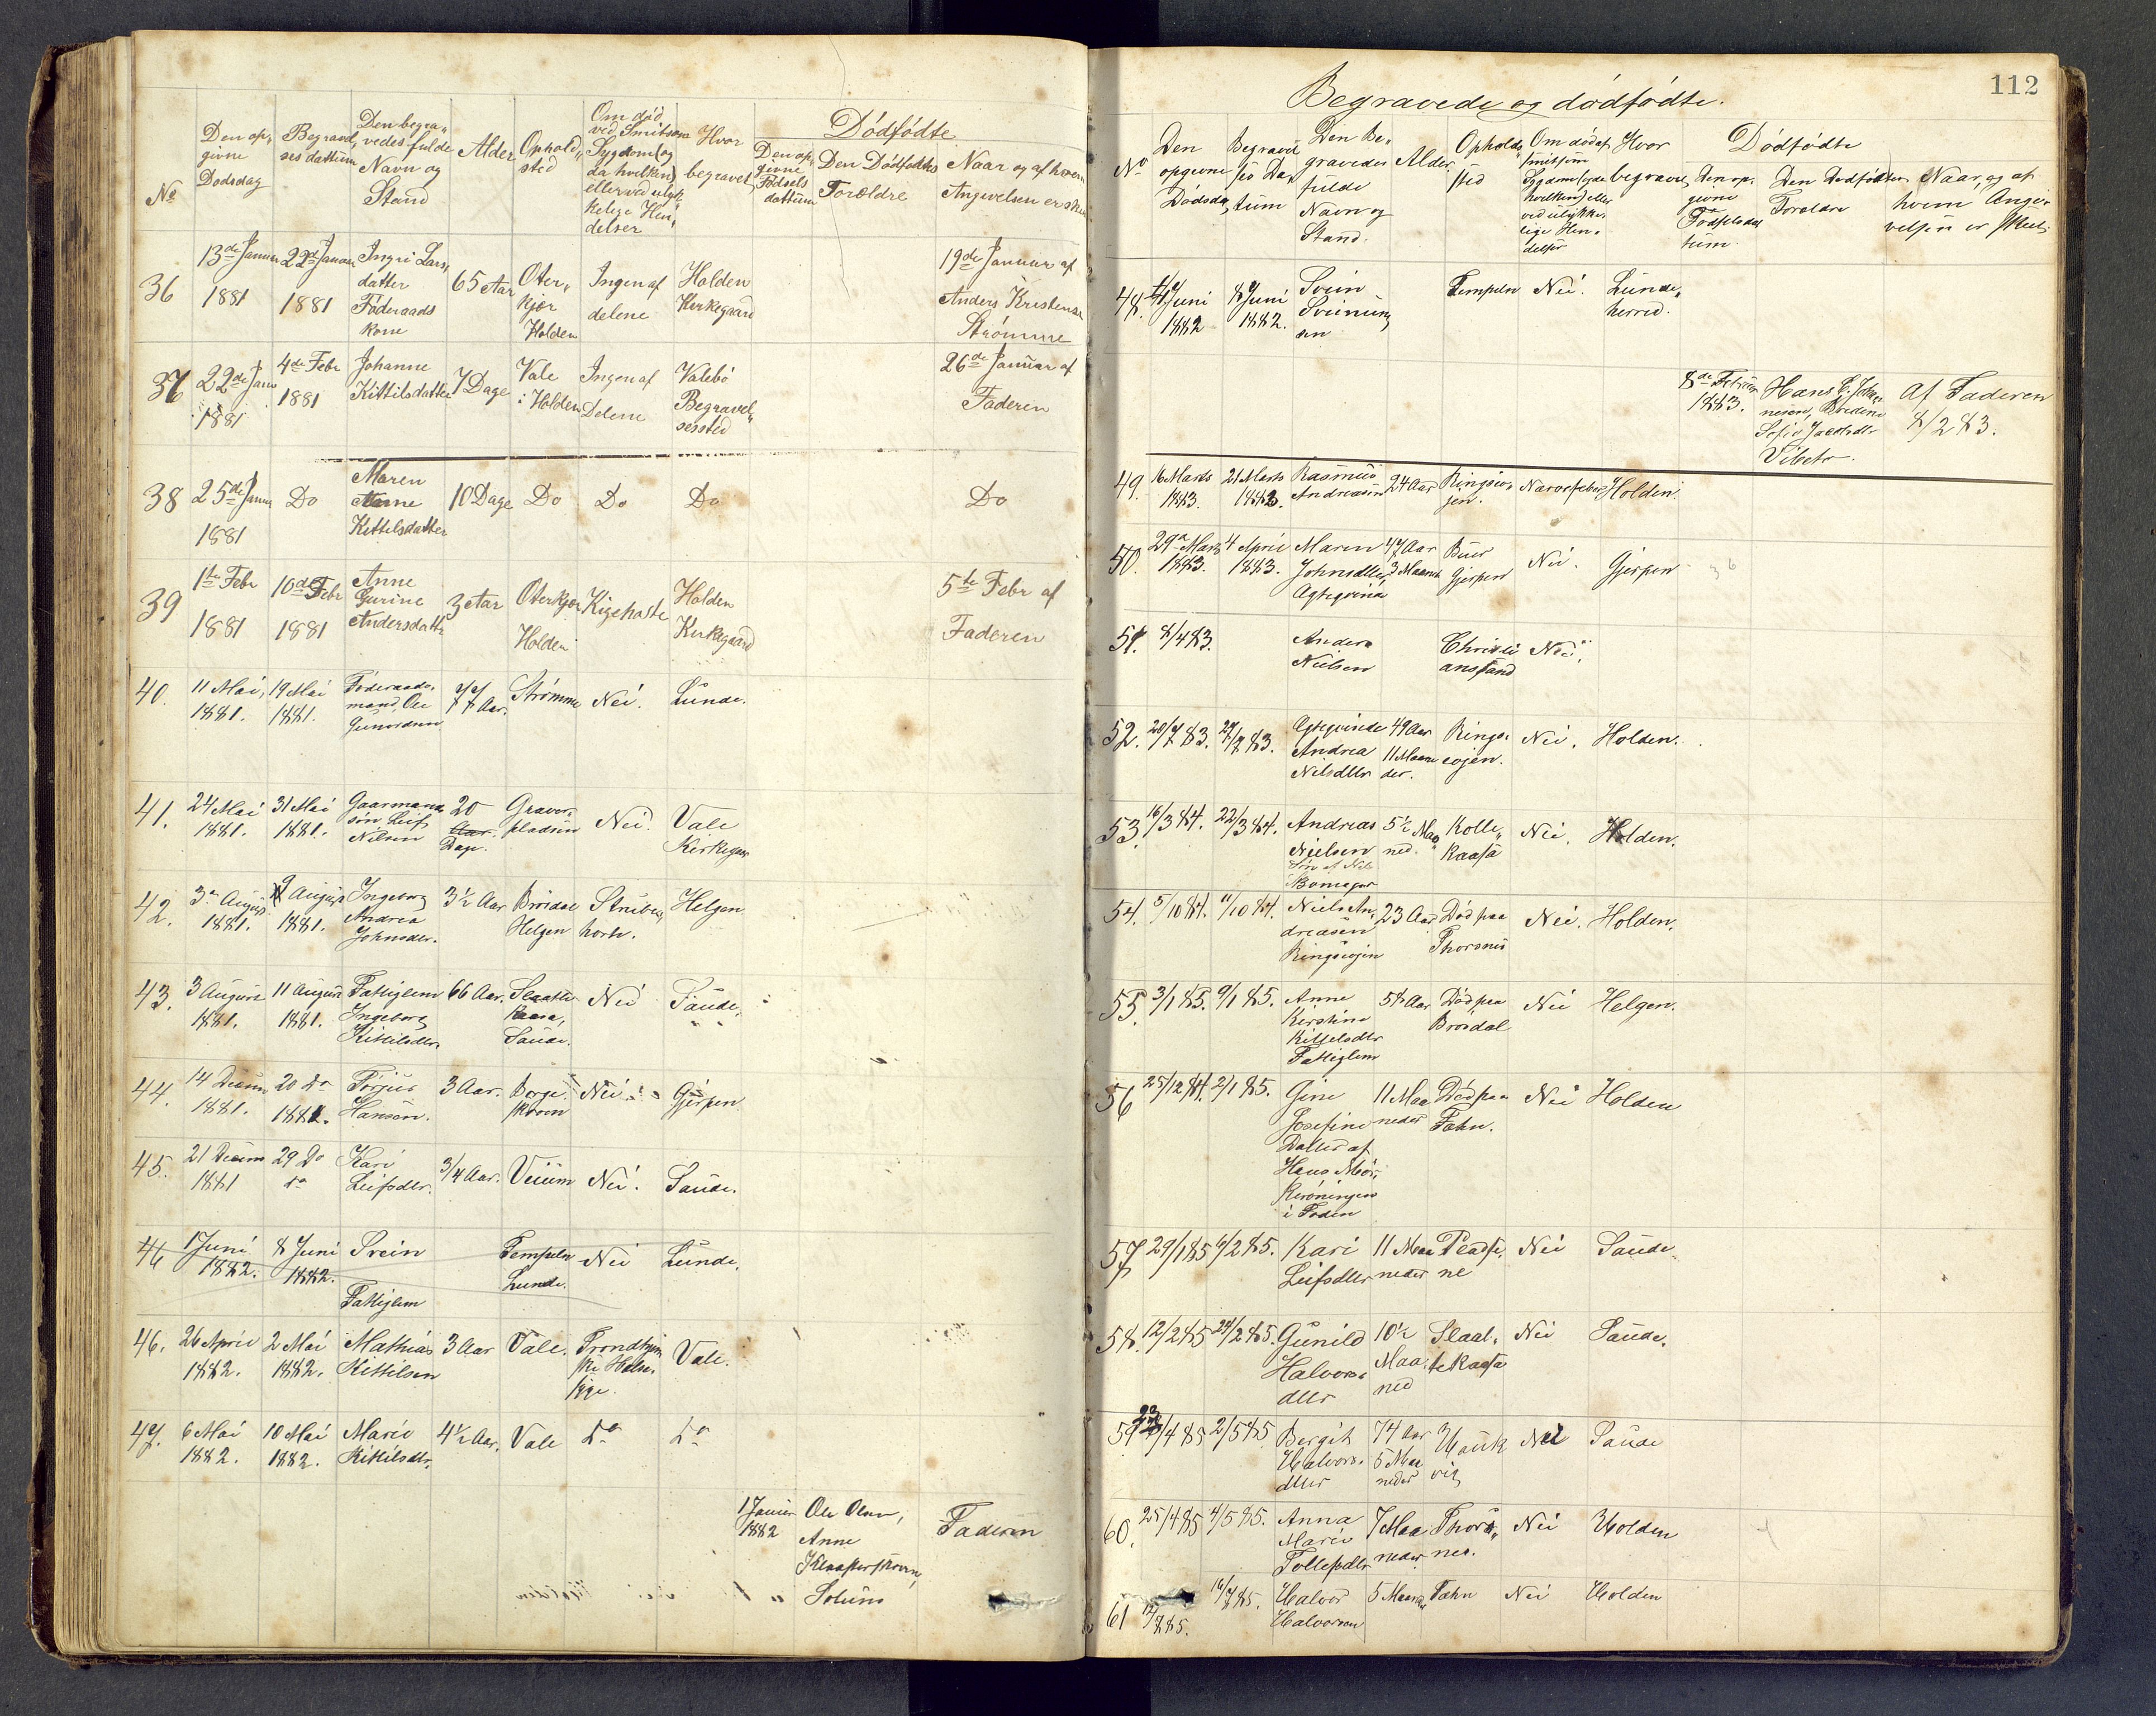 No
Den op-
givne
Dødsdag
Begravel,
ses dattum
Den begra-
vedes fulde
Navn og
Stand
Alder
Ophold,,
sted
Om død
ved Smitsom
Sygdom (og
da hvilken)
eller ved ulyk-
kelige Hen-
delser
Hvor
begravet
Dødfødte
Den op-
givne
Fødsels
dattum
Den Dødfødtes
Forældre
Naar og af hvem
Angivelsen er skee
36
13de Januar
1881
22de Januar
1881
Ingri Lars,
datter
Føderaads
kone
65 Aar
Oter,,
kjær
Holden
Ingen af
delene
Holden
Kirkegaard
19de Januar af
Anders Kristensen
Strømme
37
22de Janu
1881
4de Febr
1881
Johanne
Kittilsdatter
7 Dage
Vale
i Holden
Ingen af
Delene
Valebø
Begravel,,
sessted
26de Januar af
Faderen
38
25de Janua
1881
Do
Maren
Anne
Kittilsdatter
10 Dage
Do
Do
Do
Do
39
1te Febr
1881
10de Febr
1881
Anne
Gurine
Andersdatter
3 Aar
Oterkjær
Holden
Kigehoste
Holden
Kirkegaard
5te Febr af
Faderen
40.
11 Mai,
1881.
19 Mai
1881.
Føderaads-
mand, Ole
Gunordsen
77 Aar.
Strømme
Nei.
Lunde.
41.
24 Mai
1881.
31 Mai
1881.
Gaarmands
søn Leif
Nilsen
20
Aar
Dage.
Graver-
pladsen
Nei.
Vale
Kirkegaar
42.
3die August
1881.
9 August
1881.
Ingeborg
Andrea
Johnsdtr.
3½ Aar
Brisdal
Helgen
Strube,,
hoste.
Helgen
43.
3 August
1881.
11 August
1881.
Fattiglem
Ingeborg
Kittilsdtr.
66 Aar.
Slaatte
Kaasa,
Saude.
Nei
Saude.
44.
14 Decem
1881.
20 Do
1881.
Torjus
Hansen.
3 Aar.
Berge,
skoven
Nei
Gjerpen
45.
21 Decem
1881
29 Do
Do
Kari
Leifsdtr.
3/4 Aar.
Veium
Nei.
Saude.
46
1 Juni
1882.
8 Juni
1882.
Svein
Fattiglem
Tempeln
Lunde.
Nei
Lunde.
46.
26 April
1882.
2 Mai
1882.
Mathias
Kittilsen
3 Aar
Vale.
Trondhjem
ske Halse-
syge.
Vale.
47.
6 Mai
1882.
10 Mai
1882.
Marie
Kittilsdtr.
4½ Aar.
Vale
Do
Do
1 Januar
1882
Ole Olsen,
Anne
Klasterskoven,
Solum
Faderen
112
Begravede og dødfødte.
No
Den
opgivne
Dødsda,
Begravel
ses Da,
tum
Den Be-
gravedes
fulde
Navn og
Stand.
Alder.
Opholds,
sted
Om død af
smitsom
Sygdom (og da
hvilken) eller
ved ulykke-
lige Hen-
delser
Hvor
begravet
Dødfødte
Den op-
givne
Fødselsdat
tum.
Den Dødfødtes
Foreldre
Naar, og af
hvem Angi-
velsen er skeet.
48.
1 Juni
1882
8 Juni
1882.
Svein
Sveinung
sen
Tempeln
Nei.
Lunde,,
herred.
8de Februar
1883.
Hans C. Johan-
nesen,
Sofie Jacobsdtr
Vibeto.
Af Faderen
8/2 83.
49.
16 Marts
1883.
21 Marts
1883.
Rasmus
Andreasen
24 Aar
Ringsio-
jen.
Nervefeber
Holden.
50.
29de Marts
1883.
4 April
1883.
Maren
Johnsdtr,
Agteqvina
47 Aar
3 Maaned
Buer
Gjerpen
Nei.
Gjerpen
51.
8/4 83.
Anders
Nielsen
Christi
ansand
Nei.
52.
20/7 83.
27/7 83.
Agteqvinde
Andrea
Nilsdtr
49 Aar
11 Maane
der.
Rings-
eojen.
Nei.
Holden.
53.
16/3 84.
22/3 84.
Andreas
Nielsen
Søn af Nils
Bomager
5½ Maa,
ned.
Kolle,,
kaasa
Nei.
Holden.
54.
5/10 84.
11/10 84.
Niels An,
dreasen
Ringseojen
23 Aar
Død paa
Thorsnes
Nei.
Holden.
55.
3/1 85.
9/1 85.
Anne
Kirstine
Kittelsdtr
Fattiglem
58 Aar
Død paa
Brosdal
Nei
Helgen.
56
25/12 84.
2/1 85.
Gine
Josefine
Datter af
Hans Mør,
kerøningen
i Foden
11 Maa
neder
Død paa
Fæhn.
Nei
Holden
57
29/1 85
6/2 85.
Kari
Leifsdtr
11 Maa
neder
Pladse,
ne
Nei
Saude.
58.
12/2 85
24/2 85.
Gunild
Halvors-
dtr
10½
Maa,
ned
Slaat,
tekaasa
Nei
Saude.
59
23/4 85
2/5 85
Bergit
Halvors-
dtr
74 Aar
5 Maa
neder
Hauk
vig
Nei
Saude
60.
25/4 85
4/5 85.
Anna
Marie
Tollefsdtr
7 Maa
neder
Thors,,
nes.
Nei
Holden
61
12/7 85.
16/7 85.
Halvor
Halvorsen
5 Maaned
Fæhn
Nei
Holden